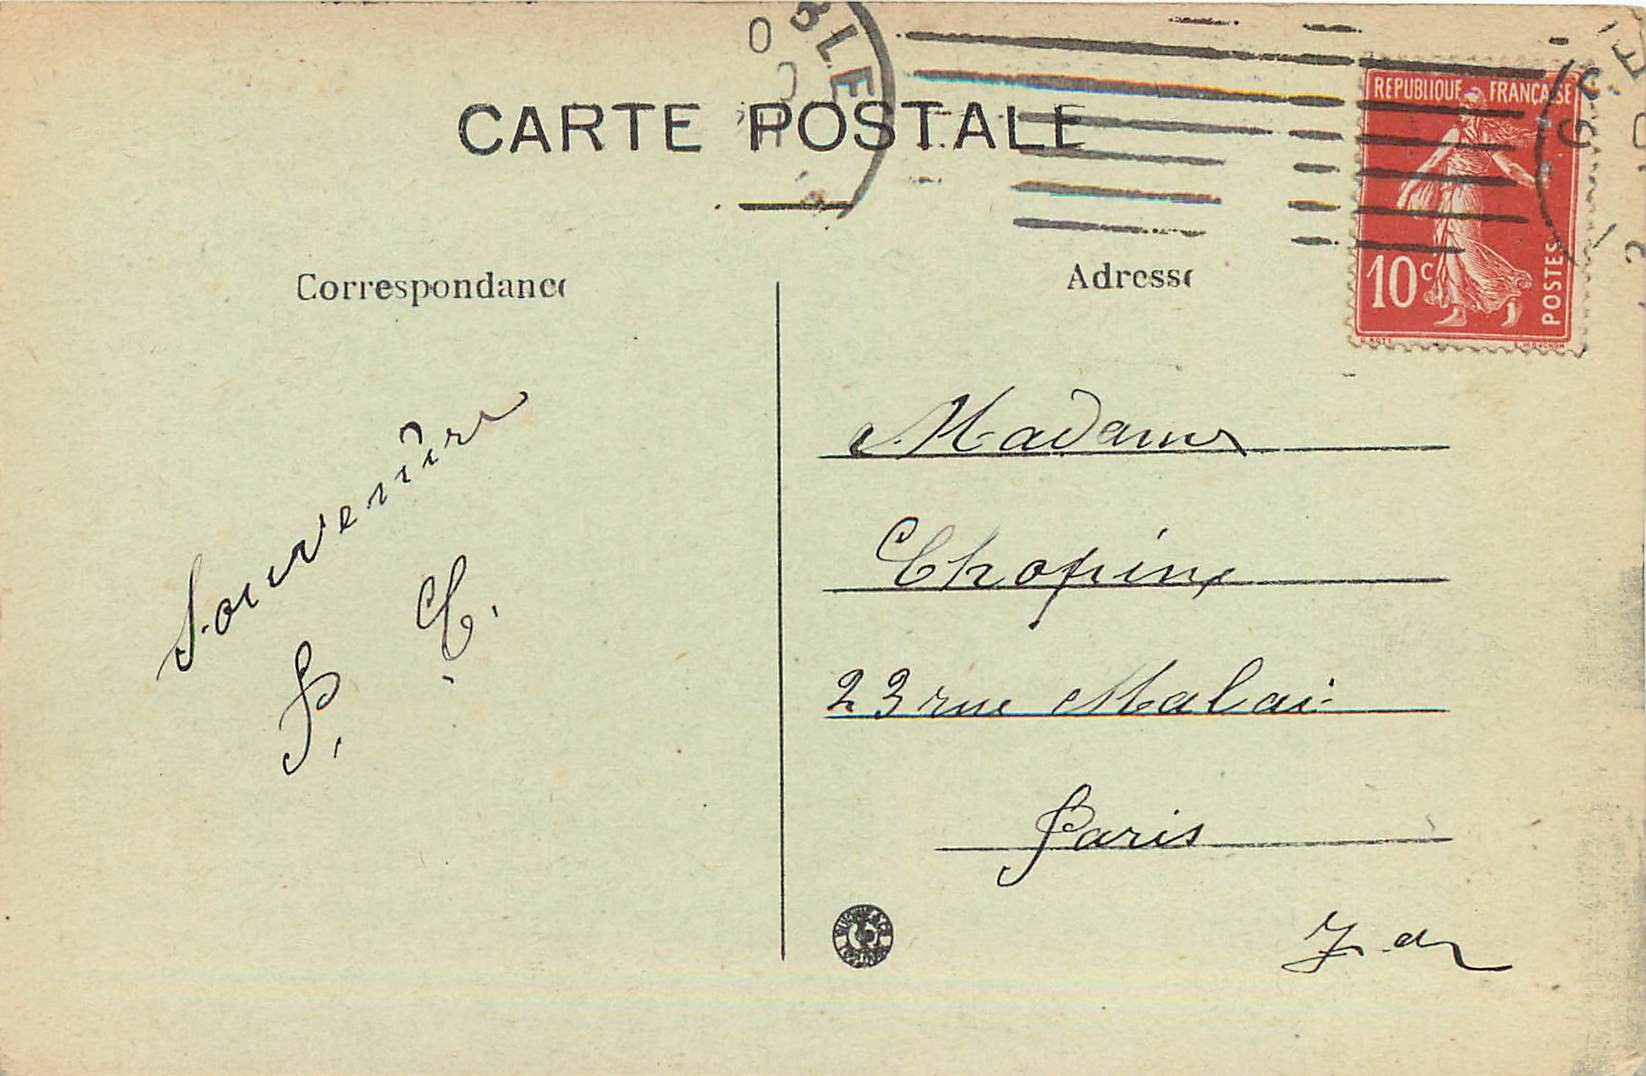 BLE
CARTE POSTALE
REPUBLIQUE FRANÇAISE
10c
POSTES
Correspondance
Adresse
Souvenir
P. C.
Madame
Chopin
23 rue Malar
Paris
7e